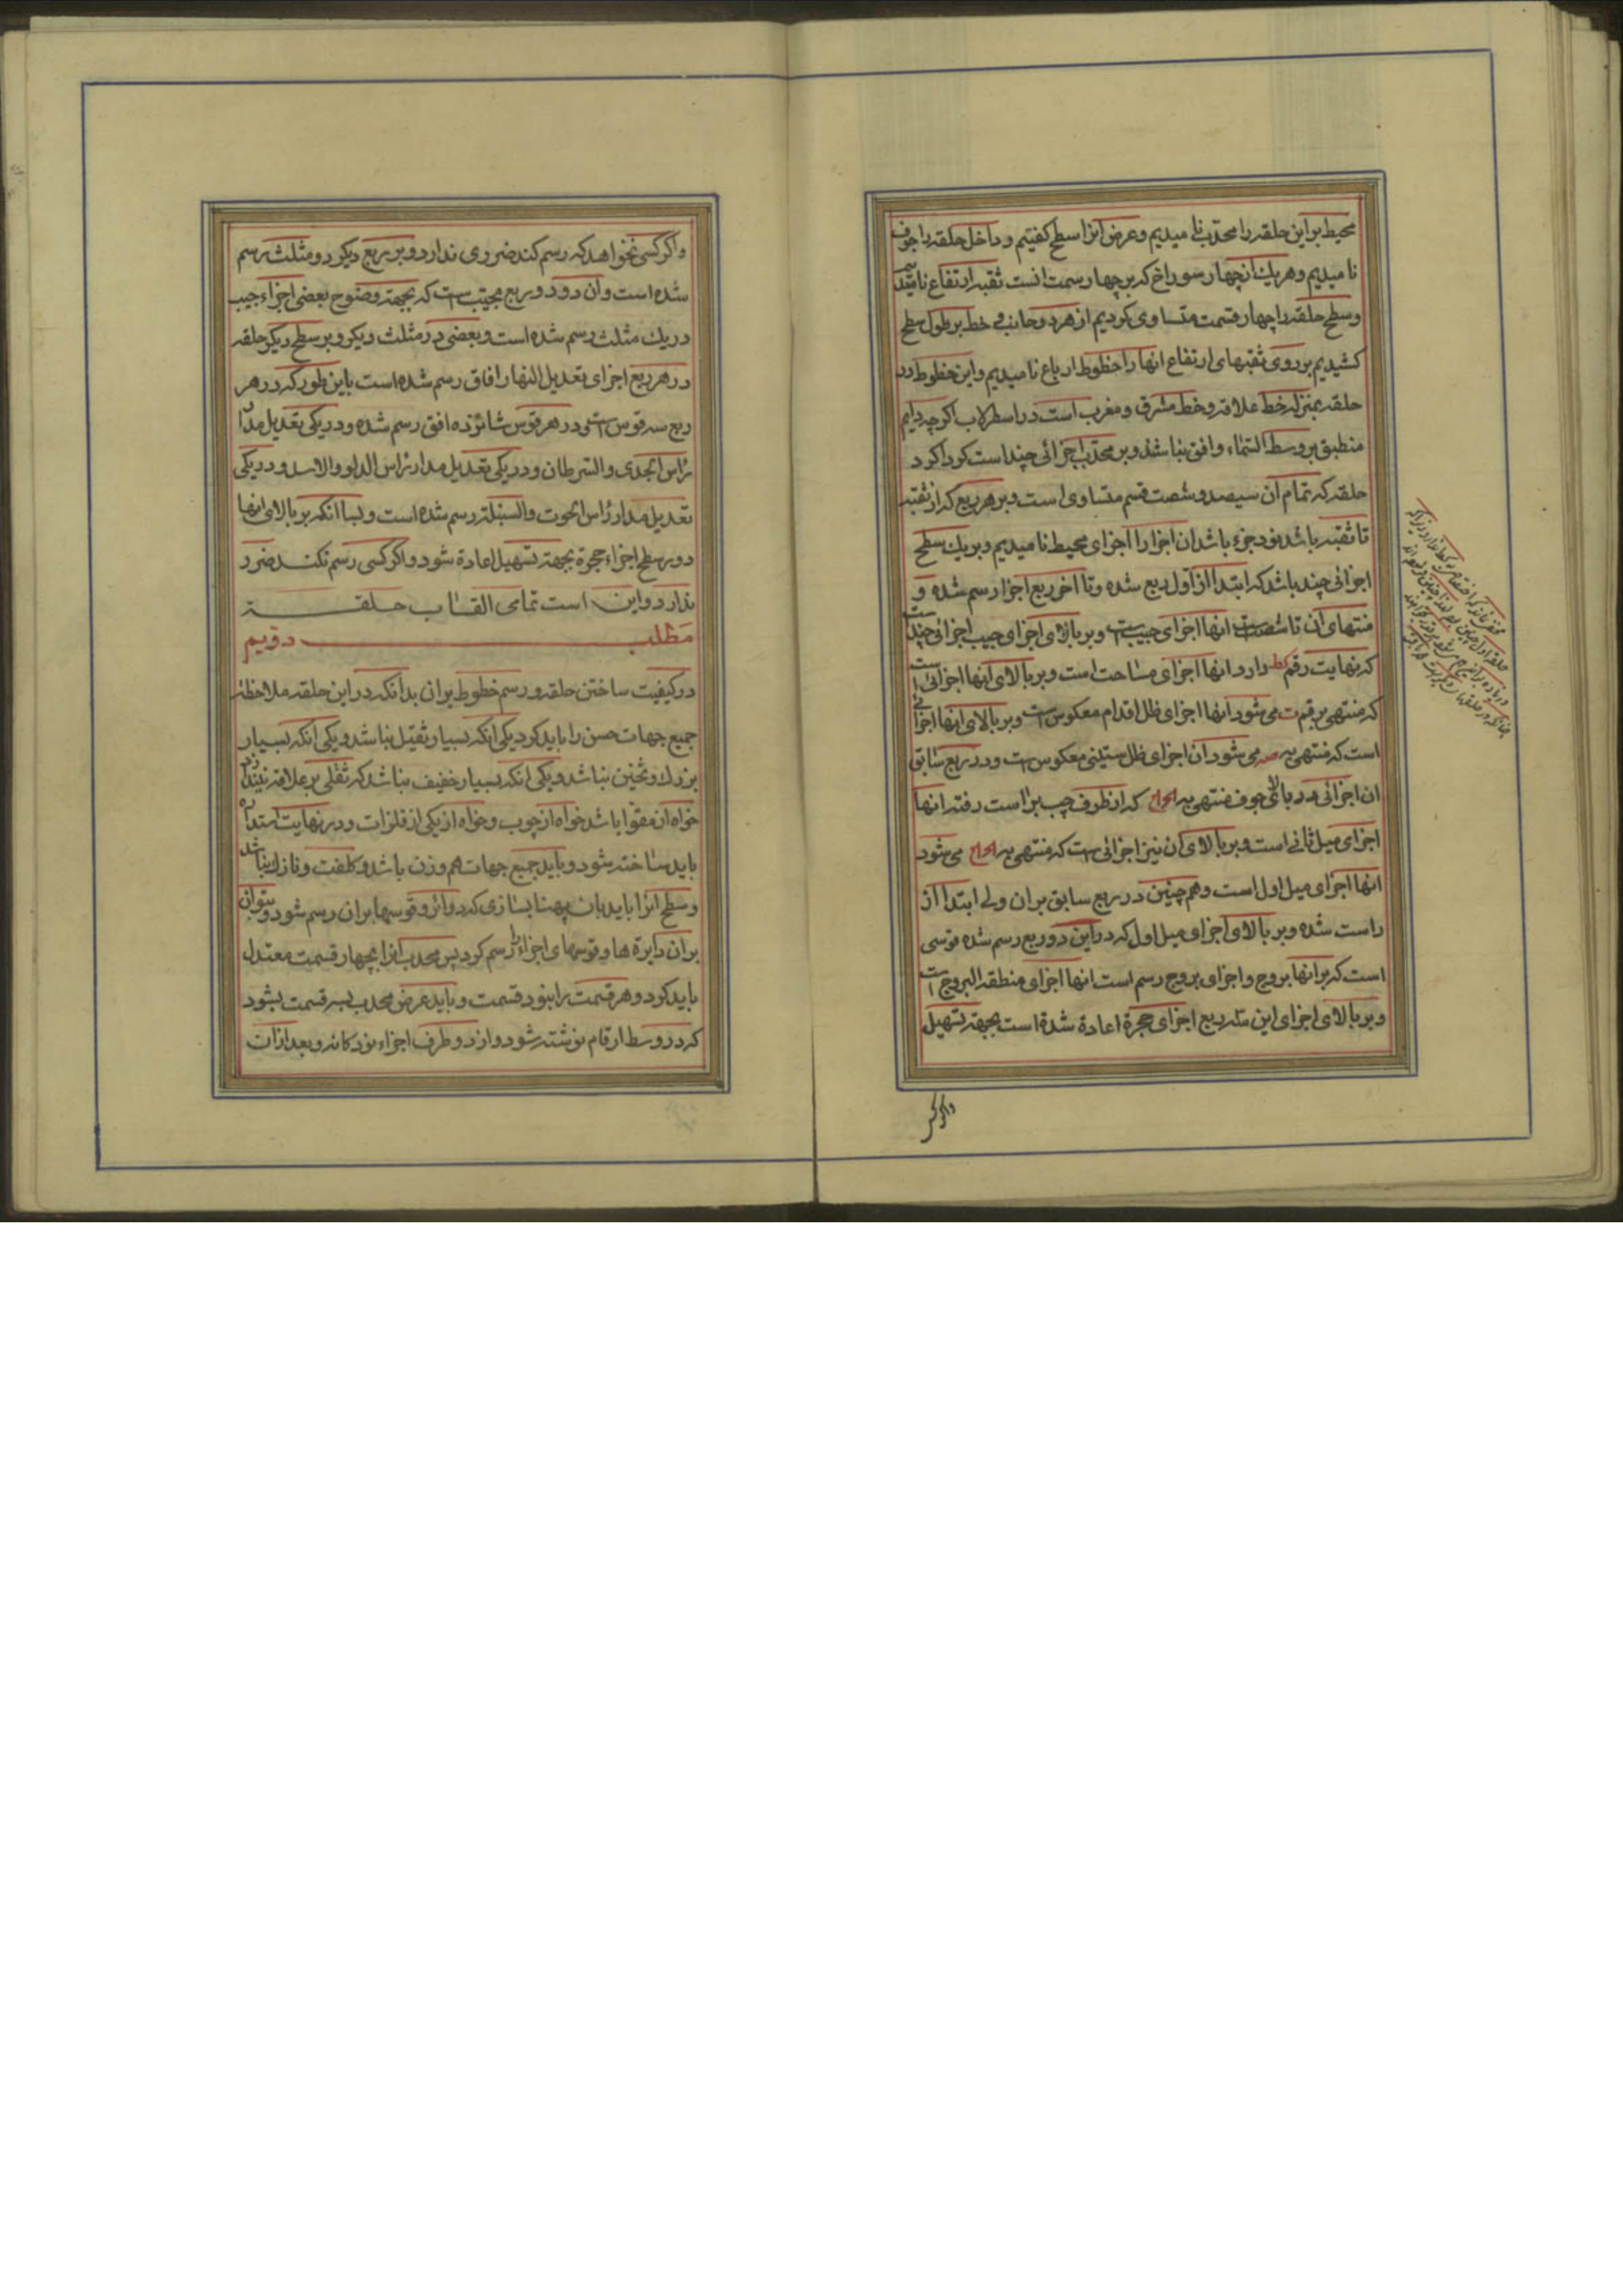 محیط بر این حلقه را محدب نامیدیم و عرض انرا سطح کفتیم و داخل حلقه را جوف
نامیدیم و هر یک انچهار سوراخ که بر چهار سمت انست ثقبه ارتفاع نامیدیم
و سطح حلقه را چهار قسمت متساوی کردیم از هر دو جانب و خط بر طول سطح
کشیدیم بر روی ثقبهای ارتفاع انها را خطوط ارباع نامیدیم و این خطوط در
حلقه بمنزله خط علاقه و خط مشرق و مغرب است در اسطرلاب اکرچه دایم
منطبق بر وسط السماء و افق نباشند و بر محدب اجزائی چند است کرداکرد
حلقه که تمام ان سیصد و شصت قسم متساوی است و بر هر ربع که از ثقبه
تا ثقبه باشد نود جزء باشد ان اجزا را اجزای محیط نامیدیم و بر یک سطح
اجزائی چند باشد که ابتدا از اول ربع شده و تا اخر ربع اجزا رسم شده و
منتهای ان تا شصت است انها اجزای جیب است و بر بالای اجزای جیب اجزائی چند است
که نهایت رقم دارد انها اجزای مساحت است و بر بالای انها اجزائی است
که منتهی برقم می شود انها اجزای ظل اقدام معکوس است و بر بالای انها اجزائی
است که منتهی به صه می شود ان اجزای ظل ستینی معکوس است و در ربع سابق
ان اجزائی در بالای جوف منتهی به که از طرف چپ براست رفته انها
اجزای میل ثانی است و بر بالای ان نیز اجزائی است که منتهی به می شود
انها اجزای میل اول است و هم چنین در ربع سابق بر ان ولی ابتدا از
راست شده و بر بالای اجزای میل اول که در این دو ربع رسم شده قوسی
است که بر انها بروج و اجزای بروج رسم است انها اجزای منطقة البروج است
و بر بالای اجزای این سه ربع اجزای حجرة اعادة شدة است بجهة تسهیل
واکر کسی
واکر کسی نخواهد که رسم کند ضروری ندارد و بر ربع دیکر دو مثلث رسم
شده است و ان دو دو ربع مجیب است که بجهة وضوح بعضی اجزاء جیب
در یک مثلث رسم شده است و بعضی در مثلث دیکر و بر سطح دیکر حلقه
در هر ربع اجزای تعدیل النهار افاق رسم شده است باین طور که در هر
ربع سه قوس است و در هر قوس شانزده افق رسم شده و در یکی تعدیل مدار
راس الجدی والسرطان و در یکی تعدیل مدار راس الدلو والاسد و در یکی
تعدیل مدار راس الحوت والسنبلة رسم شده است و بسا انکه بر بالای انها
دور سطح اجزاء حجرة بجهة تسهیل اعادة شود و اکر کسی رسم نکند ضرر
ندارد و این است تمامی القاب حلقه
مطلب دویم
در کیفیت ساختن حلقه و رسم خطوط بر ان بدانکه در این حلقه ملاحظه
جمیع جهات حسن را باید کرد یکی انکه بسیار ثقیل نباشد و یکی انکه بسیار
بزرک و ثخین نباشد و یکی انکه بسیار خفیف نباشد که ثقلی بر علاقه نیندازد
خواه از مقوا باشد خواه از چوب و خواه از یکی از فلزات و در نهایت استداره
باید ساخته شود و باید جمیع جهات هم وزن باشد و کلفت و نازک نباشد
و سطح انرا باید بان پهنا بسازی که دوائر و قوسها بر ان رسم شود و بتوان
بر ان دایرة ها و قوسهای اجزاء را رسم کرد پس محدب انرا بچهار قسمت معتدل
باید کرد و هر قسمت را بنود قسمت و باید عرض محدب بسه قسمت بشود
که در وسط ارقام نوشته شود و از دو طرف اجزاء نودکانه و بعد از ان